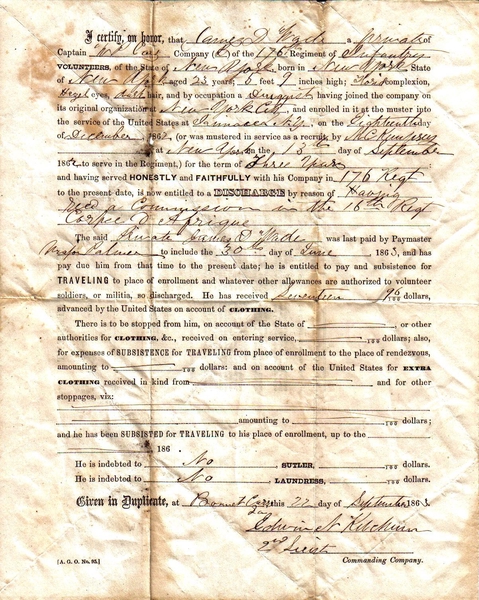 I certify, on honor, that James D Wade a private of
Captain Company ( ) of the 176 Regiment of Infantry
VOLUNTEERS, of the State of New York born in New York State
of New York aged 23 years; 6 feet 9 inches high; complexion,
Hazel eyes, hair, and by occupation a Druggist having joined the company on
its original organization at New York City and enrolled in it at the muster into
the service of the United States at on the Eighteenth day
of December 1862 (or was mustered in service as a recruit by
at New York on the 13th day of September
1862 to serve in the Regiment,) for the term of Three Years
and having served HONESTLY and FAITHFULLY with his Company in 176 Regt
to the present date, is now entitled to a DISCHARGE by reason of Having
a Commission in the 16th Regt
Corps D Afrique
The said Private James D Wade was last paid by Paymaster
Major to include the 30th day of June 1863, and has
pay due him from that time to the present date; he is entitled to pay and subsistence for
TRAVELING to place of enrollment and whatever other allowances are authorized to volunteer
soldiers, or militia, so discharged. He has received Seventeen 96/100 dollars,
advanced by the United States on account of CLOTHING.
There is to be stopped from him, on account of the State of , or other
authorities for CLOTHING, &c., received on entering service, /100 dollars; also,
for expenses of SUBSISTENCE for TRAVELING from place of enrollment to the place of rendezvous,
amounting to /100 dollars: and on account of the United States for EXTRA
CLOTHING received in kind from and for other
stoppages, viz:
amounting to /100 dollars;
and he has been SUBSISTED for TRAVELING to his place of enrollment, up to the
186 .
He is indebted to No SUTLER, /100 dollars.
He is indebted to No LAUNDRESS, /100 dollars.
Given in Duplicate, at Bonnet Carre this 22 day of September 1863
La
Edwin N Ketchum
2nd Lieut
Commanding Company.
[A. G. O. No. 95.]